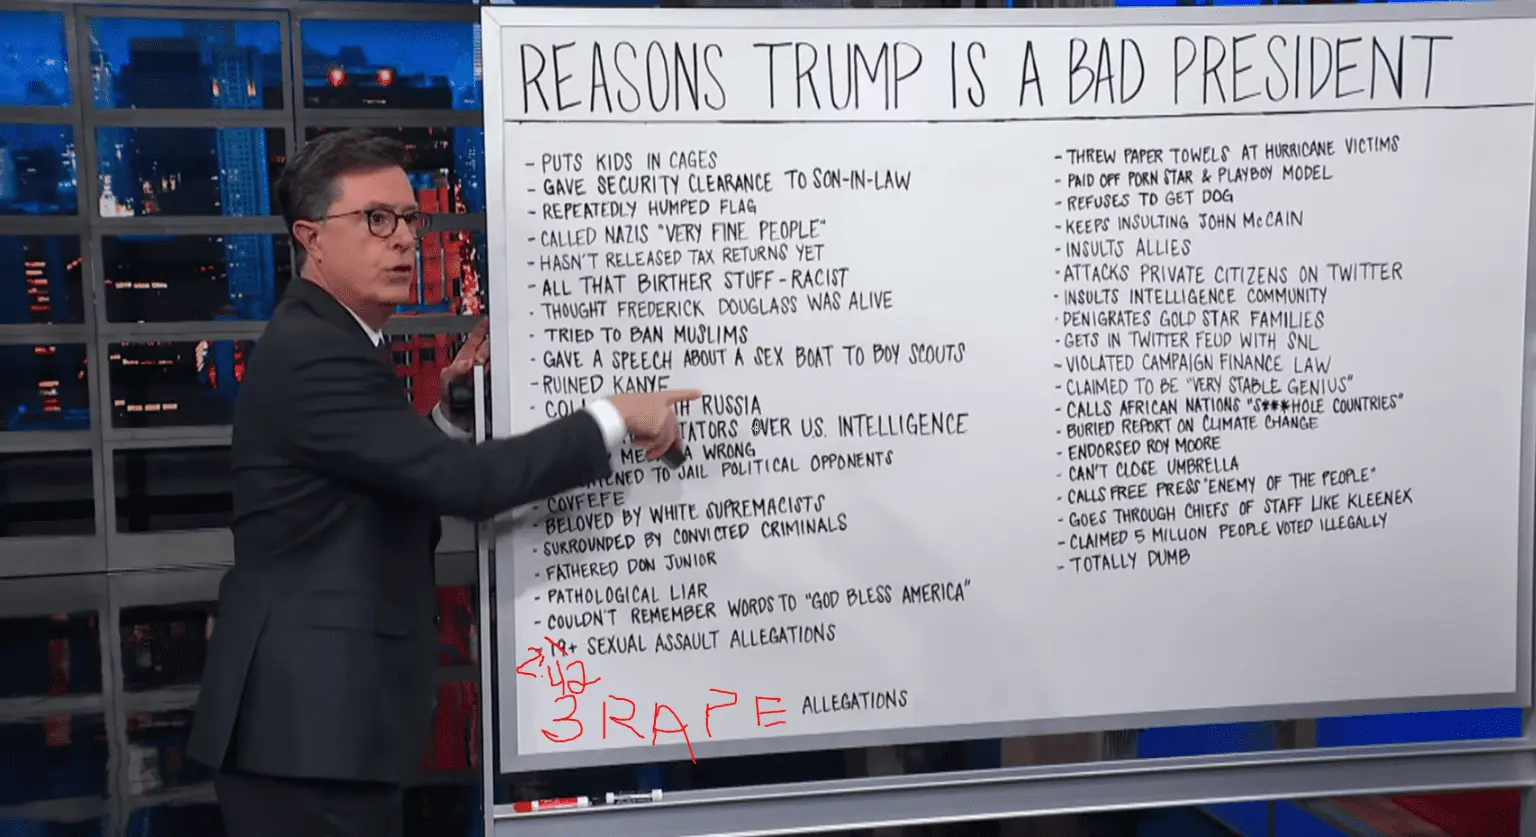 REASONS TRUMP IS A BAD PRESIDENT
- PUTS KIDS IN CAGES
- GAVE SECURITY CLEARANCE TO SON-IN-LAW
- REPEATEDLY HUMPED FLAG
- CALLED NAZIS "VERY FINE PEOPLE"
- HASN'T RELEASED TAX RETURNS YET
- ALL THAT BIRTHER STUFF - RACIST
- THOUGHT FREDERICK DOUGLASS WAS ALIVE
- TRIED TO BAN MUSLIMS
- GAVE A SPEECH ABOUT A SEX BOAT TO BOY SCOUTS
- RUINED KANYE
- RUSSIA
OVER U.S. INTELLIGENCE
WRONG
TO JAIL POLITICAL OPPONENTS
- COVFEFE
- BELOVED BY WHITE SUPREMACISTS
- SURROUNDED BY CONVICTED CRIMINALS
- FATHERED DON JUNIOR
- PATHOLOGICAL LIAR
- COULDN'T REMEMBER WORDS TO "GOD BLESS AMERICA"
- 19+ SEXUAL ASSAULT ALLEGATIONS
42
3 RAPE ALLEGATIONS
- THREW PAPER TOWELS AT HURRICANE VICTIMS
- PAID OFF PORN STAR & PLAYBOY MODEL
- REFUSES TO GET DOG
- KEEPS INSULTING JOHN McCAIN
- INSULTS ALLIES
- ATTACKS PRIVATE CITIZENS ON TWITTER
- INSULTS INTELLIGENCE COMMUNITY
- DENIGRATES GOLD STAR FAMILIES
- GETS IN TWITTER FEUD WITH SNL
- VIOLATED CAMPAIGN FINANCE LAW
- CLAIMED TO BE "VERY STABLE GENIUS"
- CALLS AFRICAN NATIONS "S***HOLE COUNTRIES"
- BURIED REPORT ON CLIMATE CHANGE
- ENDORSED ROY MOORE
- CAN'T CLOSE UMBRELLA
- CALLS FREE PRESS "ENEMY OF THE PEOPLE"
- GOES THROUGH CHIEFS OF STAFF LIKE KLEENEX
- CLAIMED 5 MILLION PEOPLE VOTED ILLEGALLY
- TOTALLY DUMB